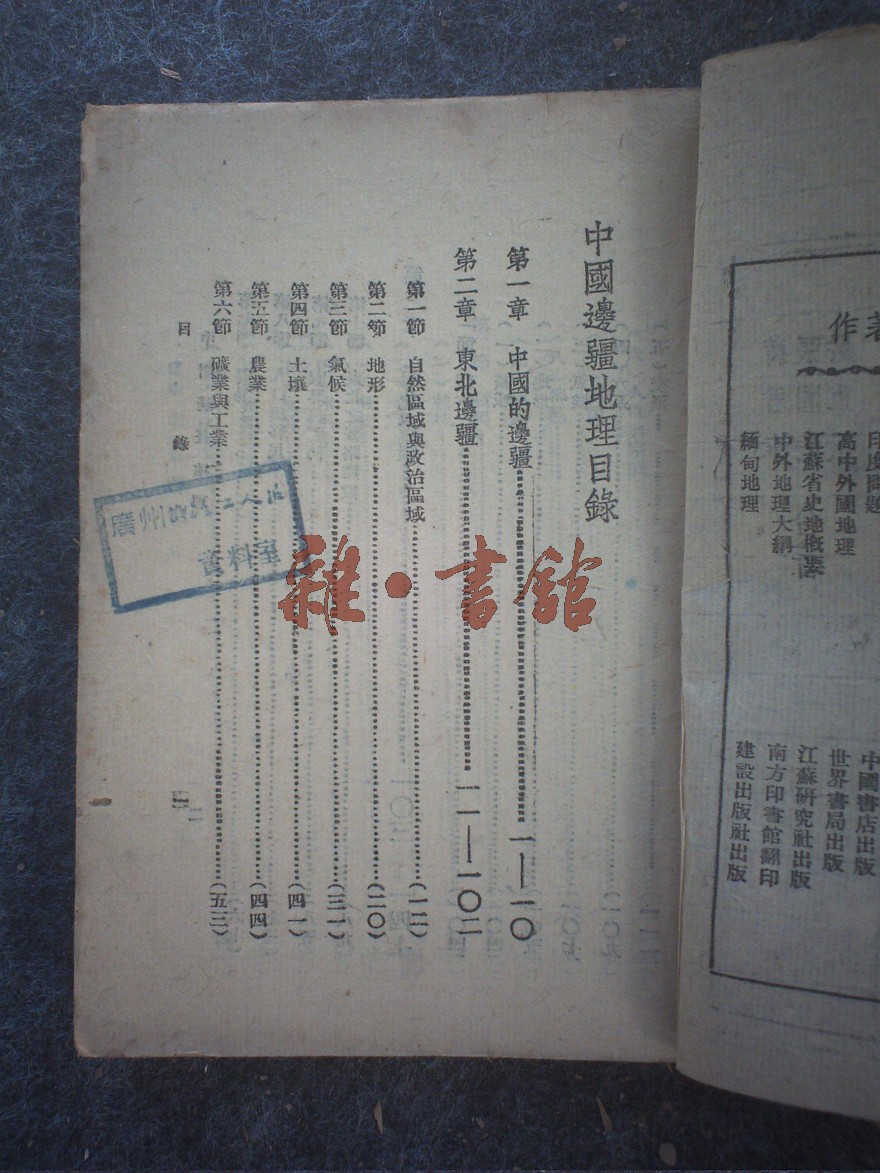 著作
印度問題
高中外國地理
江蘇省史地概要
中外地理大綱
緬甸地理
中國書店出版
世界書局出版
江蘇研究社出版
南方印書館翻印
建設出版社出版
中國邊疆地理目錄
第一章 中國的邊疆……一—一〇
第二章 東北邊疆……一一—一〇二
第一節 自然區域與政治區域……(一二)
第二節 地形……(二〇)
第三節 氣候……(三一)
第四節 土壤……(四一)
第五節 農業……(四四)
第六節 礦業與工業……(五三)
目錄
一
廣州
資料室
雜·書館